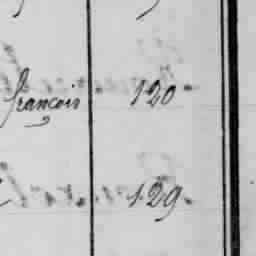 françois 120.
129.